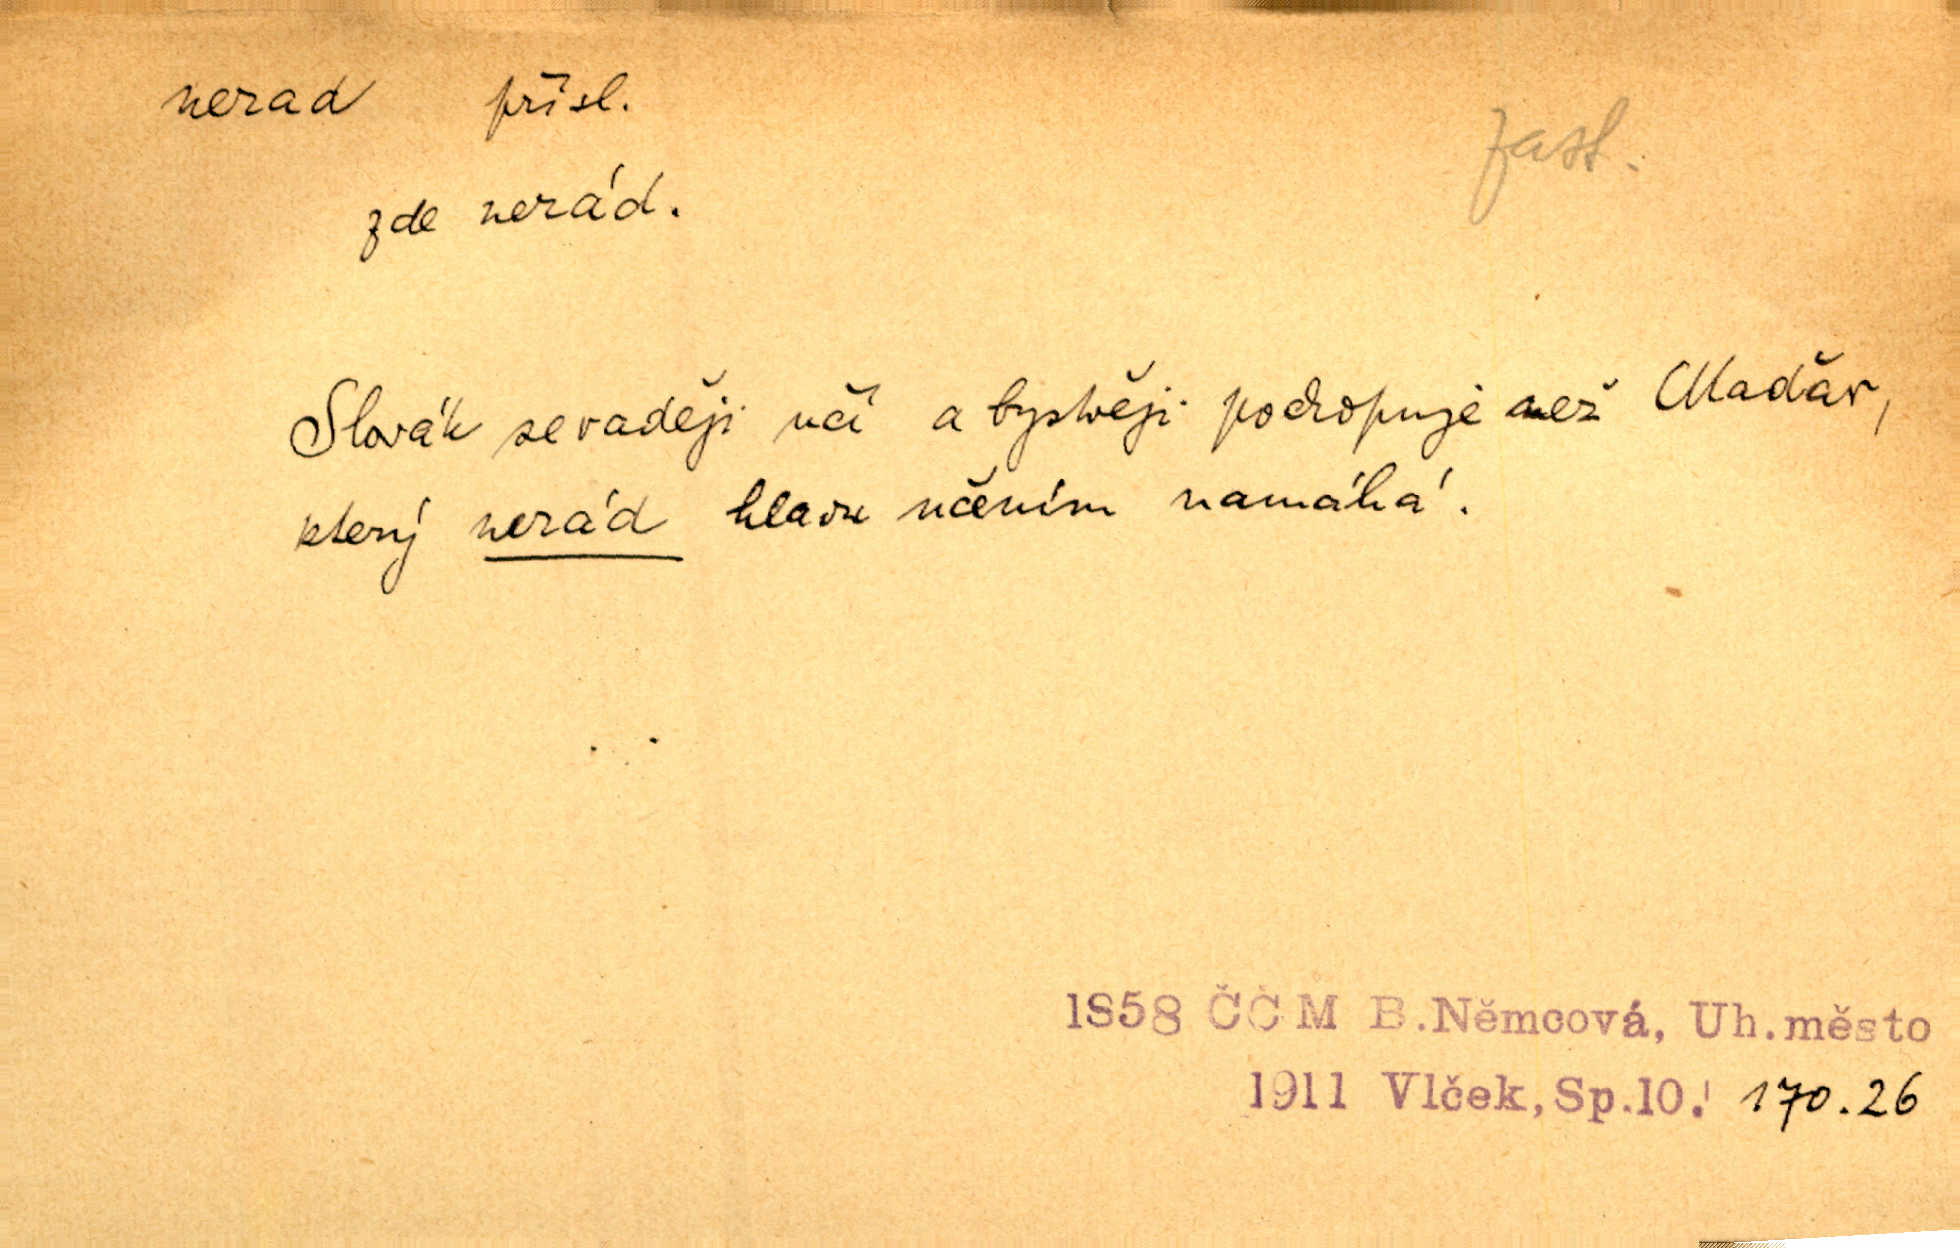 nerad přísl.
zast.
zde nerád.
Slovák se raději učí a bystřeji pochopuje než Maďar,
který nerád hlavu učením namáhá.
1858 ČČM B.Němcová, Uh.město
1911 Vlček,Sp.10. 170.26